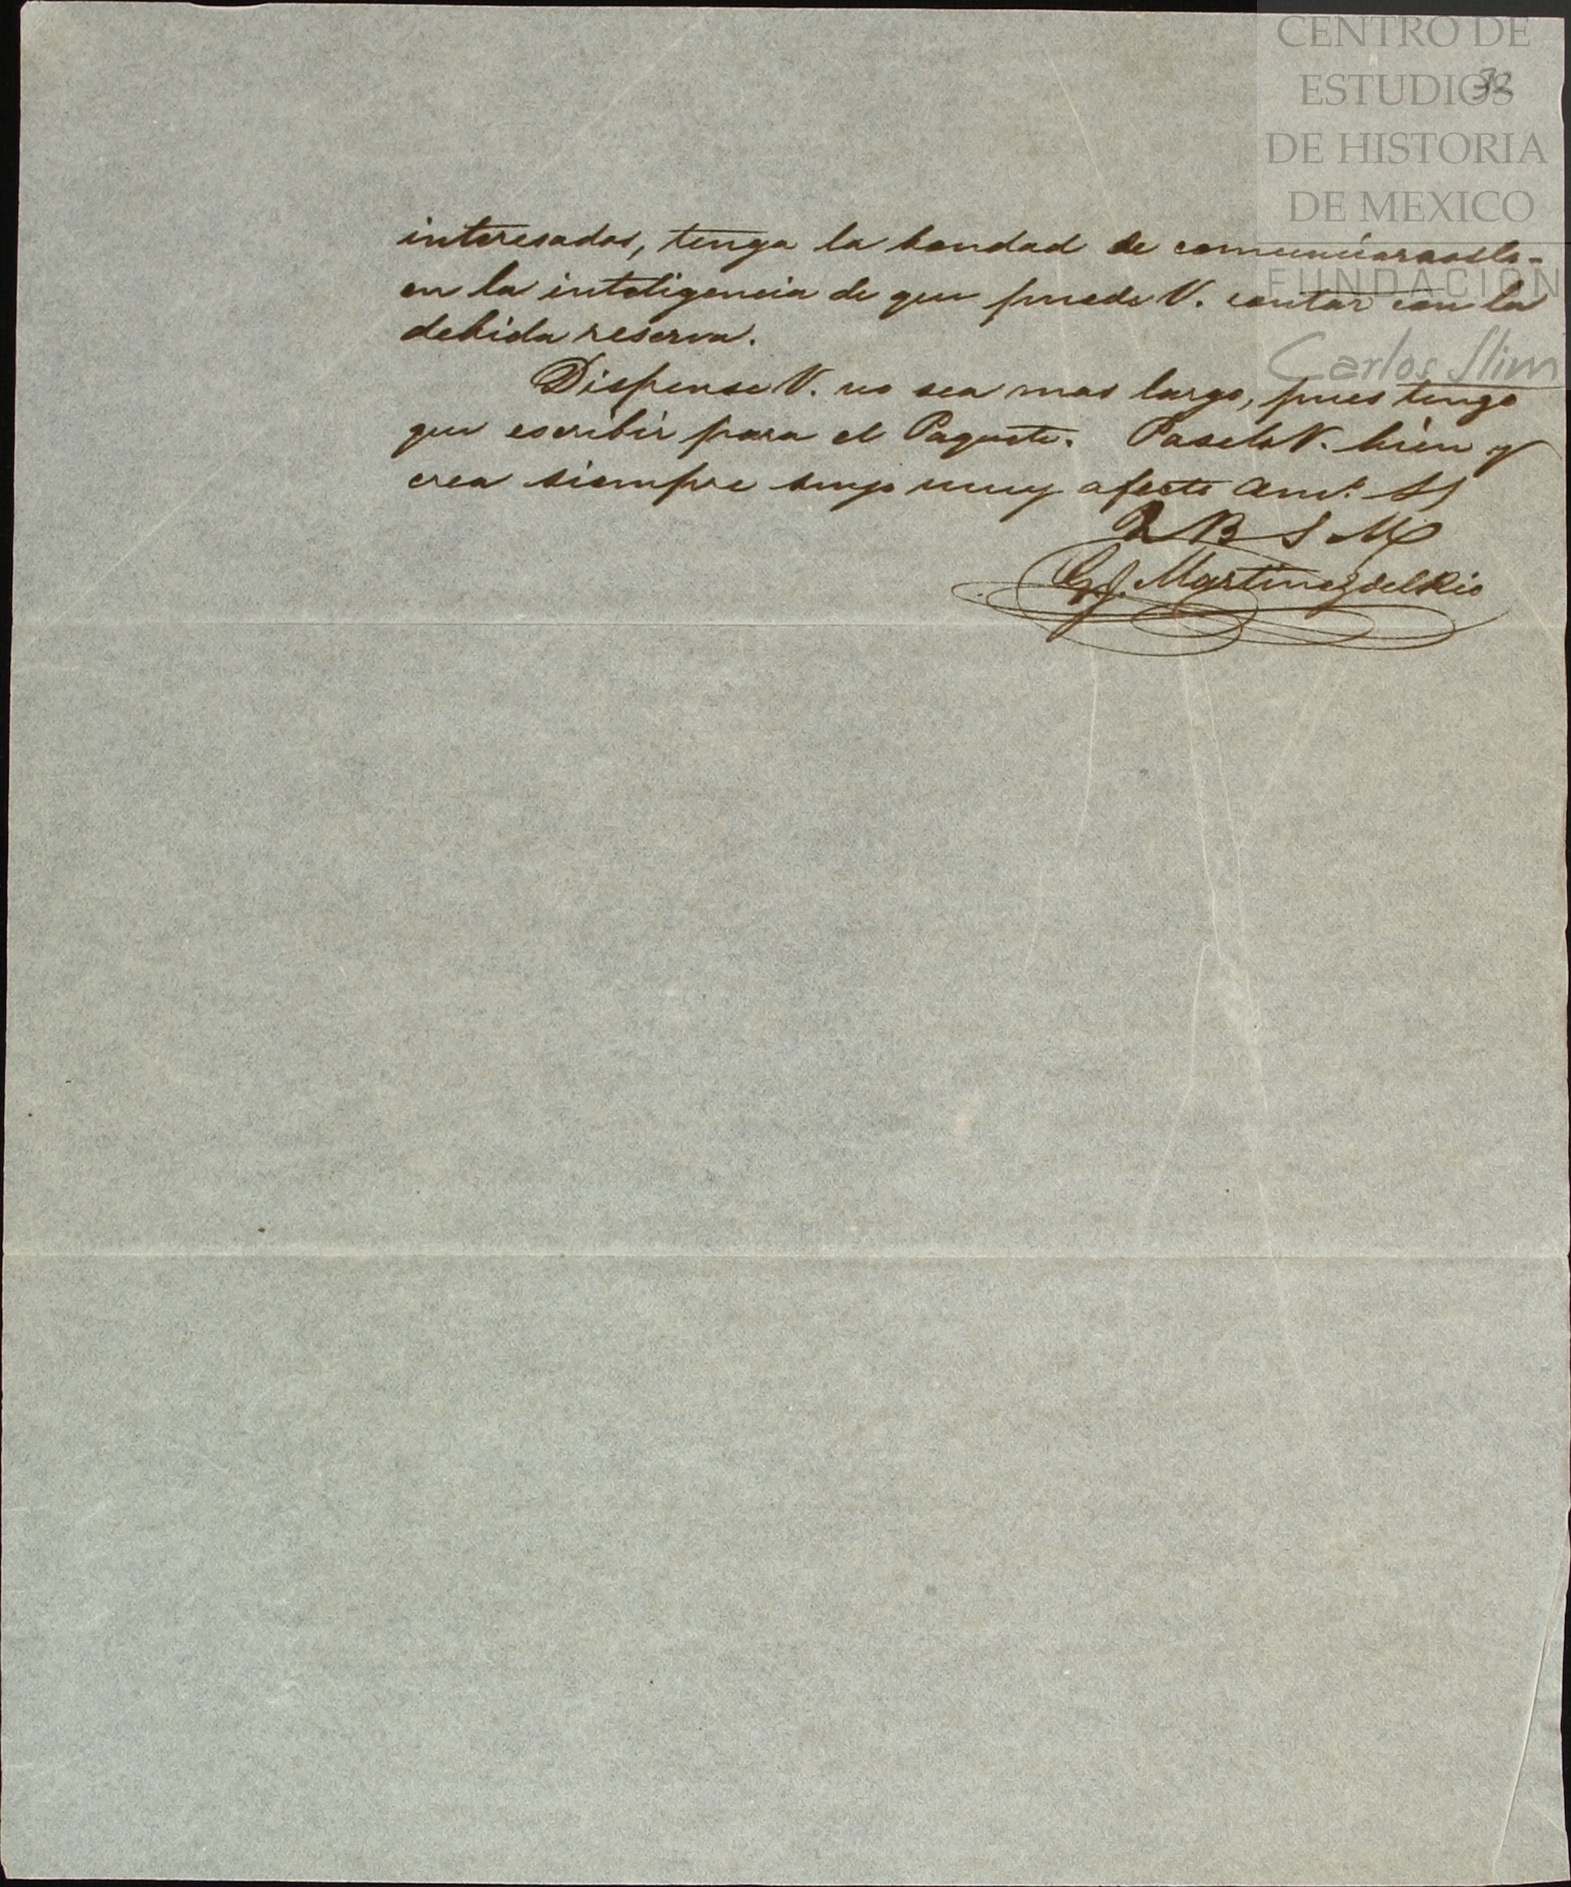 CENTRO DE
ESTUDIOS
32
DE HISTORIA
DE MEXICO
FUNDACIÓN
Carlos Slim
interesados, tenga la bondad de comunicarnoslo-
en la inteligencia de que puede V. contar con la
debida reserva.
Dispense V. no sea mas largo, pues tengo
que escribir para el Paquete. Paselo V. bien y
crea siempre suyo muy afecto amº. SS
Q B S M
G J. Martinez del Rio